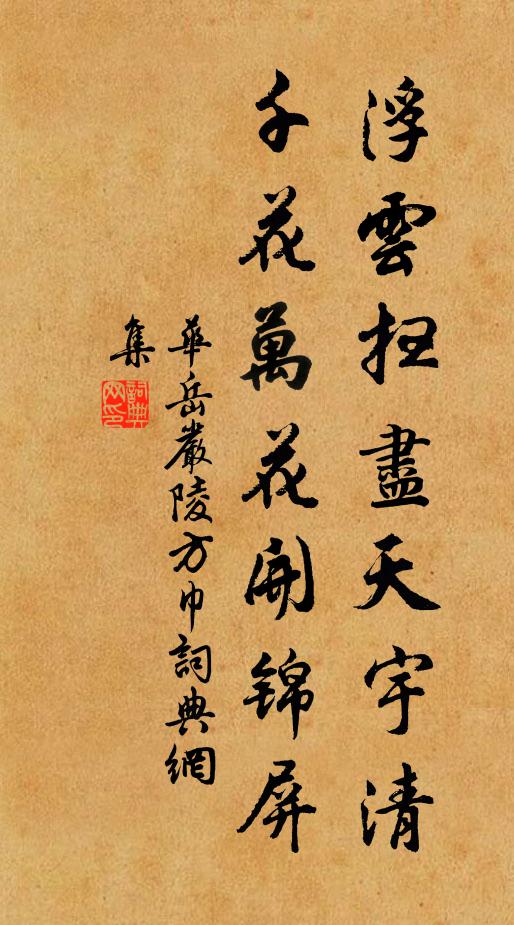 浮雲掃盡天宇清
千花萬花開錦屏
華岳嚴陵方巾詞典網
集
詞典
网印